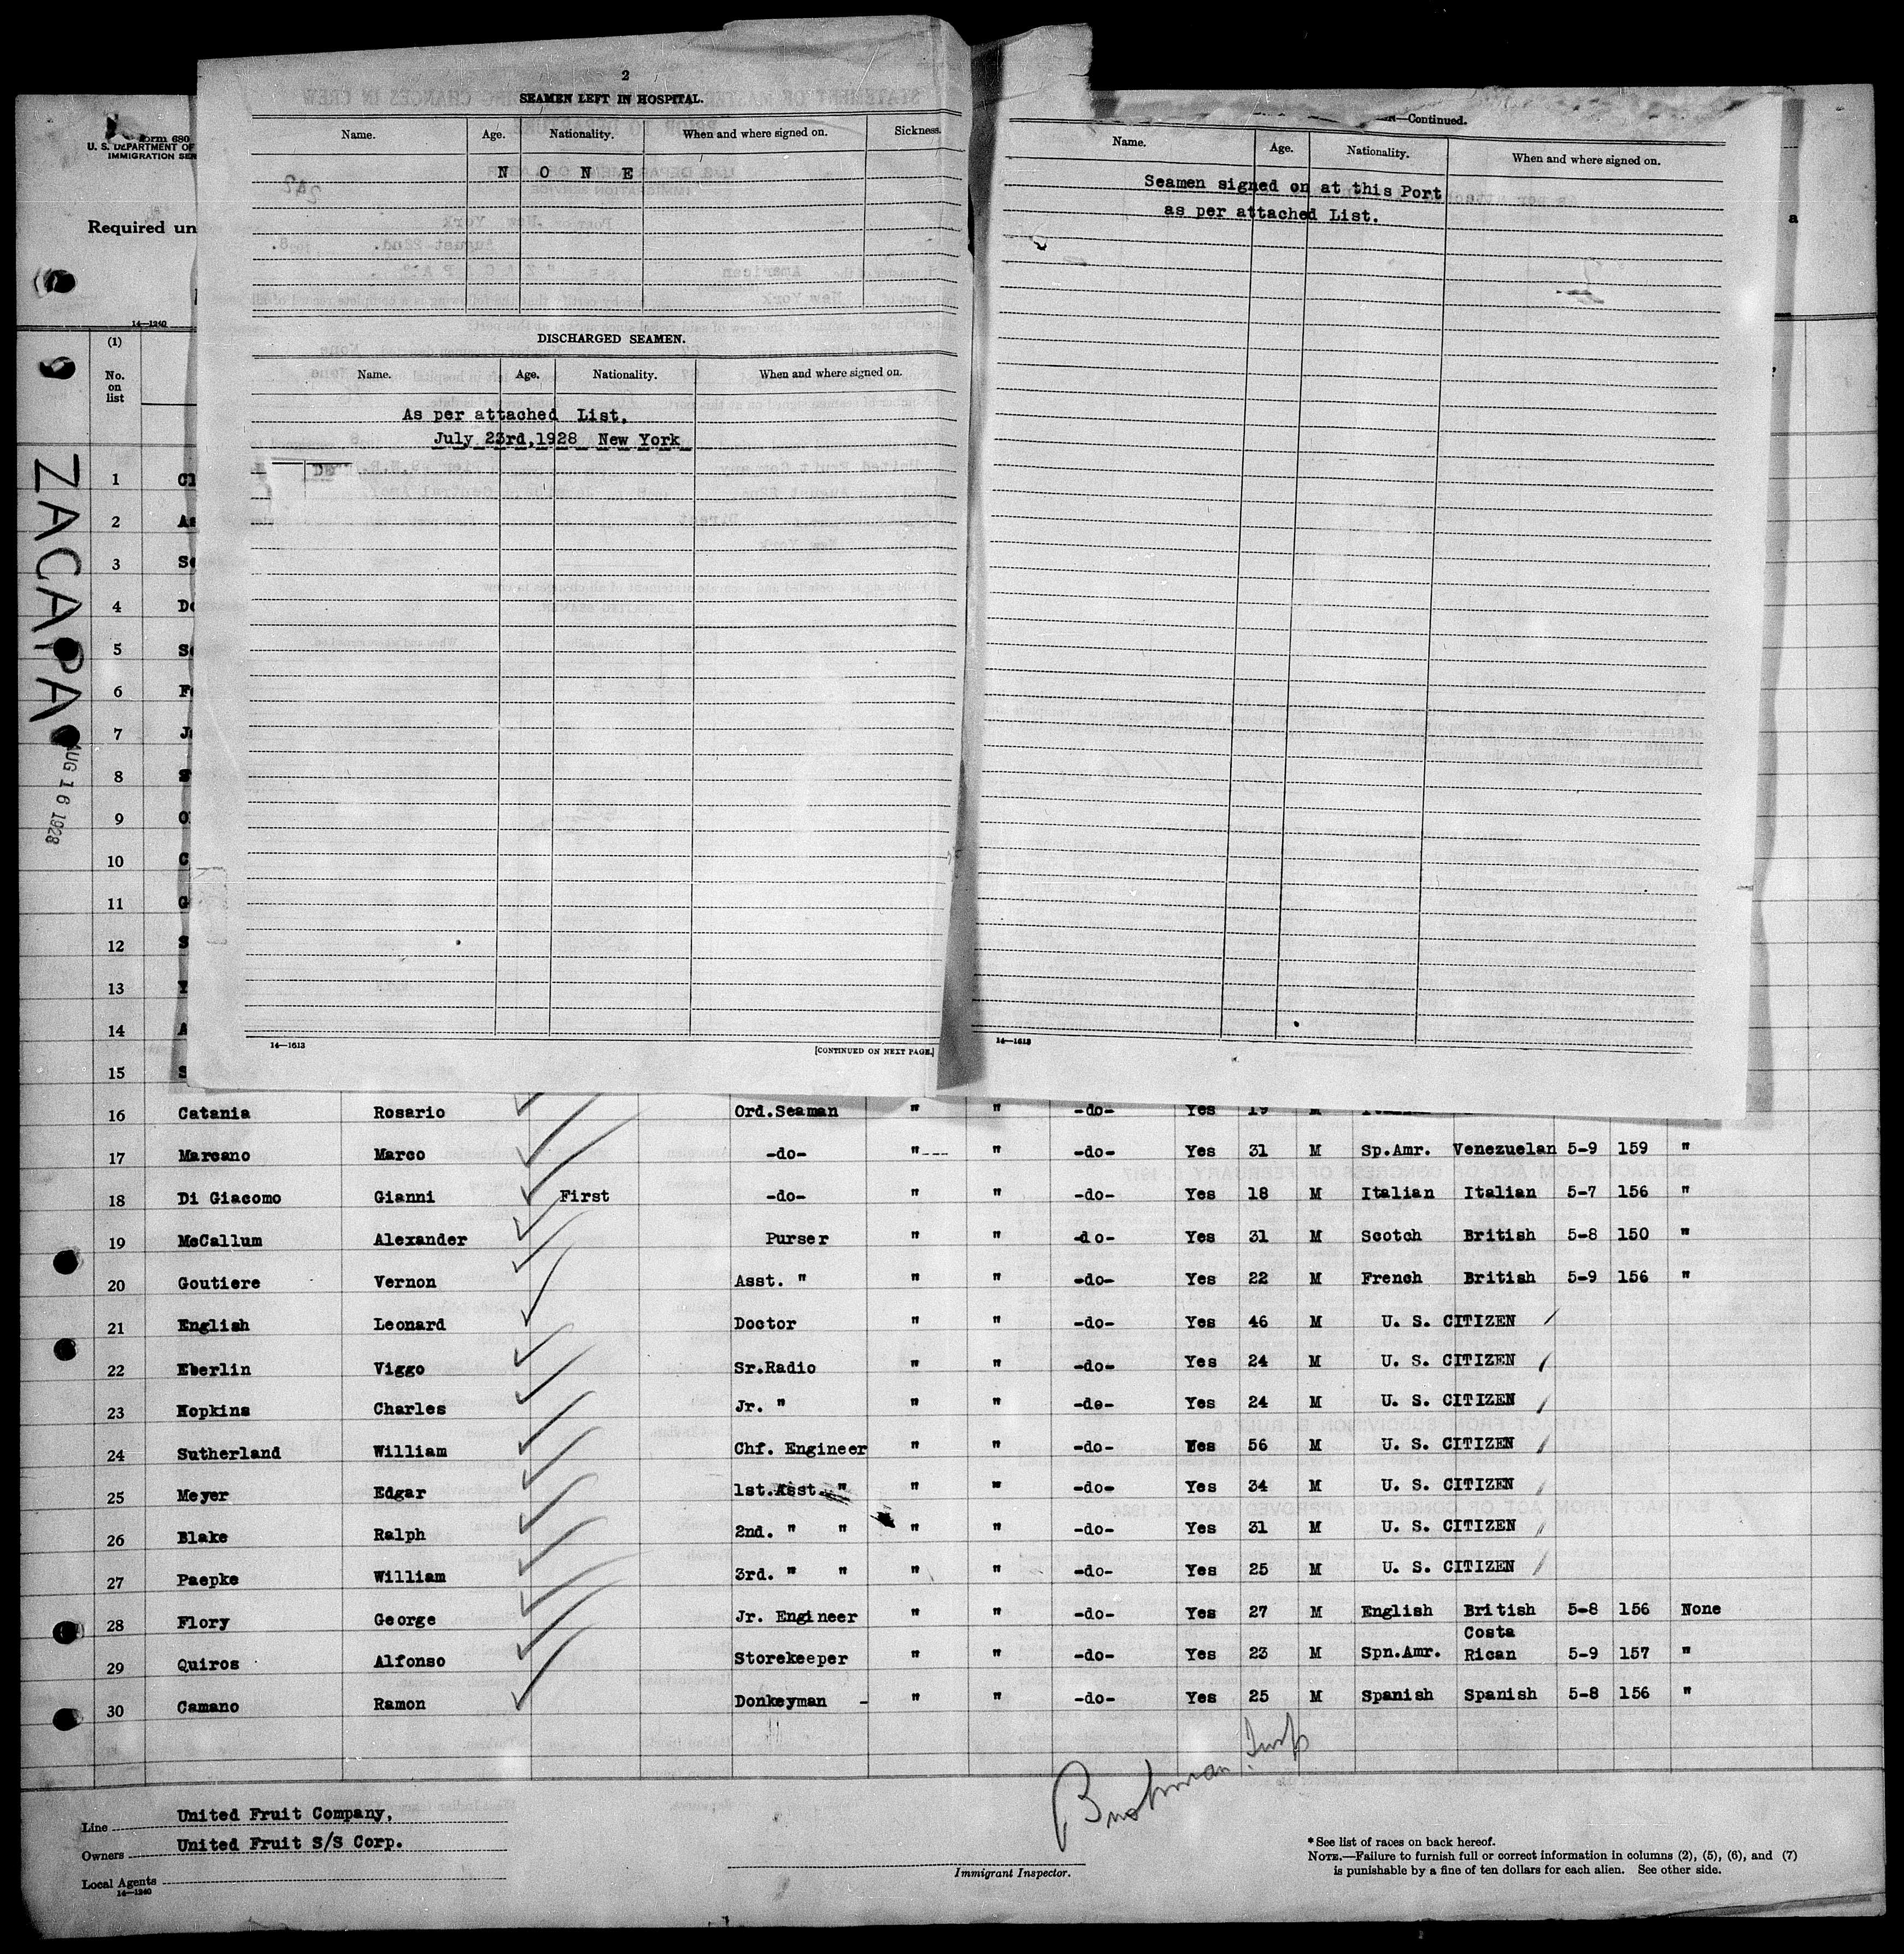 2
SEAMEN LEFT IN HOSPITAL.
Name. Age. Nationality. When and where signed on. Sickness.
N O N E
DISCHARGED SEAMEN.
Name. Age. Nationality. When and where signed on.
As per attached List.
July 23rd, 1928 New York
14—1613
[CONTINUED ON NEXT PAGE.]
—Continued.
Name. Age. Nationality. When and where signed on.
Seamen signed on at this Port
as per attached List.
14—1613
Form 680
U. S. DEPARTMENT OF
IMMIGRATION SER
Required un
14—1240
(1)
No. on list
ZACAPA
AUG 16 1928
1
2
3
4
5
6
7
8
9
10
11
12
13
14
15
16 Catania Rosario Ord.Seaman " " -do- Yes 19 M
17 Marcano Marco -do- " " -do- Yes 31 M Sp.Amr. Venezuelan 5-9 159 "
18 Di Giacomo Gianni First -do- " " -do- Yes 18 M Italian Italian 5-7 156 "
19 McCallum Alexander Purser " " -do- Yes 31 M Scotch British 5-8 150 "
20 Goutiere Vernon Asst. " " " -do- Yes 22 M French British 5-9 156 "
21 English Leonard Doctor " " -do- Yes 46 M U. S. CITIZEN
22 Eberlin Viggo Sr.Radio " " -do- Yes 24 M U. S. CITIZEN
23 Hopkins Charles Jr. " " " -de- Yes 24 M U. S. CITIZEN
24 Sutherland William Chf. Engineer " " -do- Yes 56 M U. S. CITIZEN
25 Meyer Edgar 1st.Asst. " " " -do- Yes 34 M U. S. CITIZEN
26 Blake Ralph 2nd. " " " " -do- Yes 31 M U. S. CITIZEN
27 Paepke William 3rd. " " " " -do- Yes 25 M U. S. CITIZEN
28 Flory George Jr. Engineer " " -do- Yes 27 M English British 5-8 156 None
29 Quiros Alfonso Storekeeper " " -do- Yes 23 M Spn.Amr. Costa Rican 5-9 157 "
30 Camano Ramon Donkeyman - " " -do- Yes 25 M Spanish Spanish 5-8 156 "
Line United Fruit Company,
Owners United Fruit S/S Corp.
Local Agents
14—1240
Immigrant Inspector.
* See list of races on back hereof.
NOTE.—Failure to furnish full or correct information in columns (2), (5), (6), and (7)
is punishable by a fine of ten dollars for each alien. See other side.